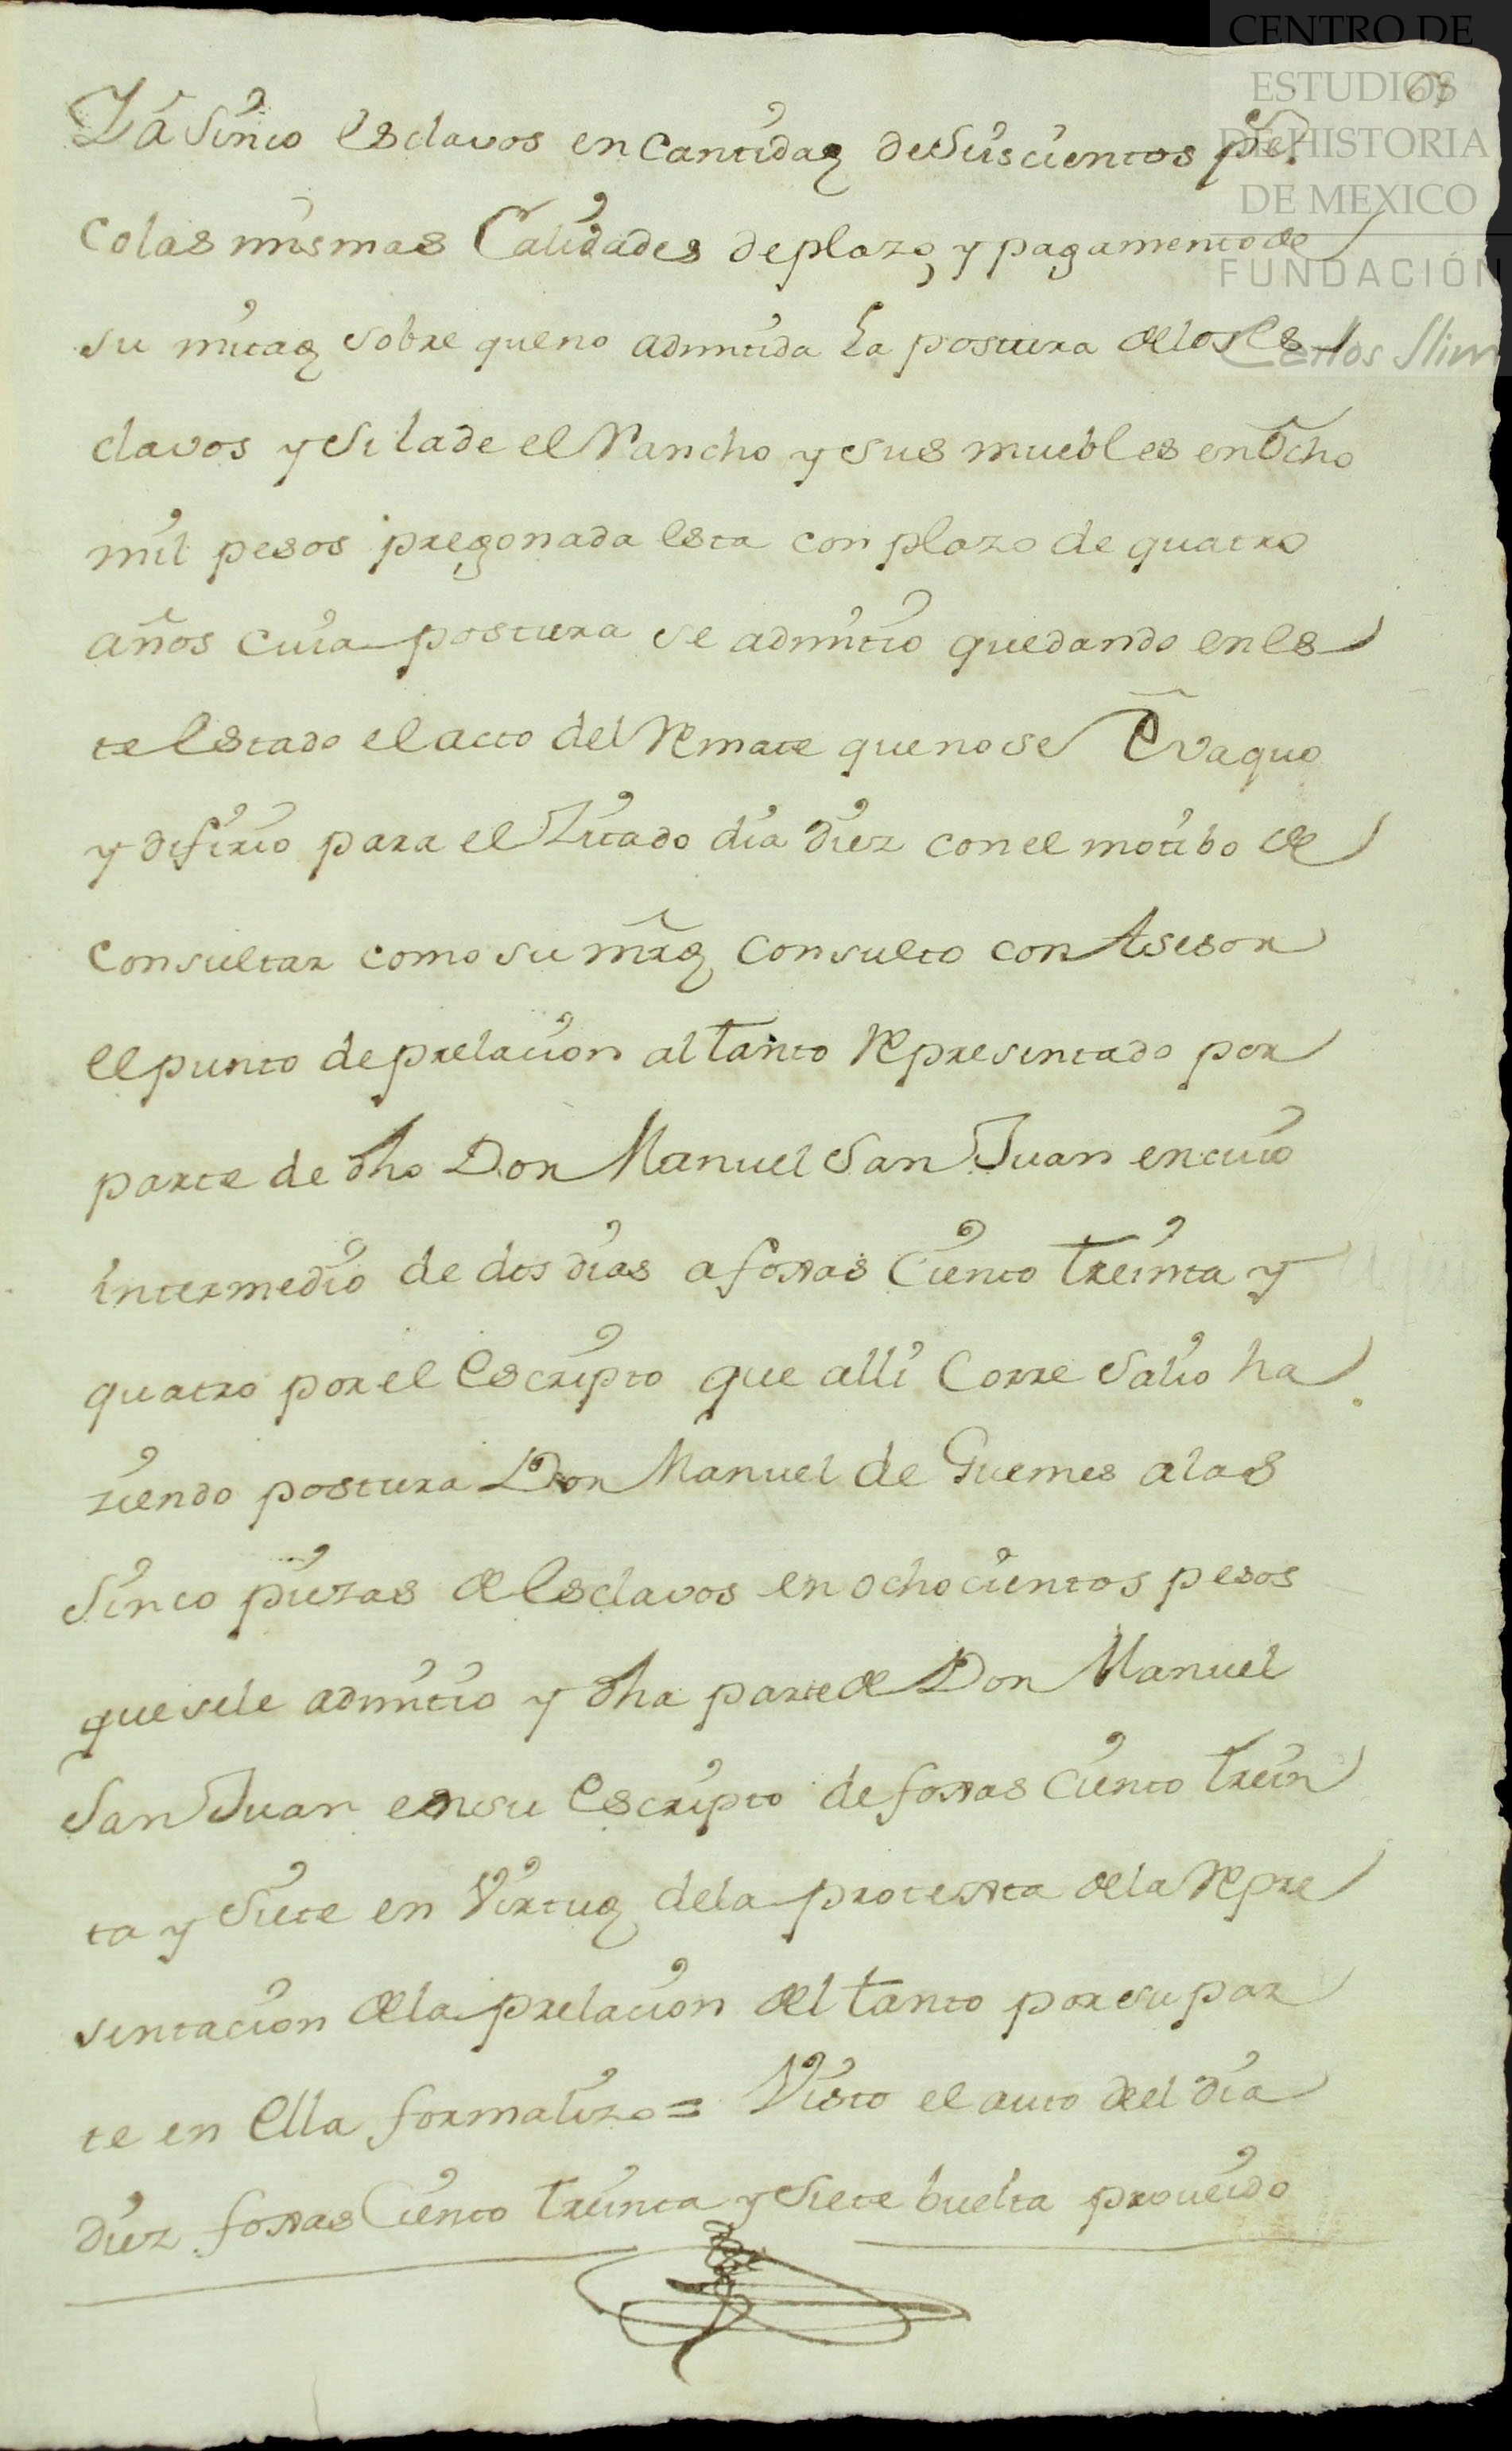 CENTRO DE
ESTUDIOS
DE HISTORIA
DE MEXICO
FUNDACIÓN
Carlos Slim
Ya sinco esclavos en cantidad de Siiscientos ps.
co las mismas Calidades de plazo, y pagamento de
su mitad sobre que no admitida la postura de los es
clavos y si la de el Rancho y sus muebles en Ocho
mil pesos pregonada esta con plazo de quatro
años cuia postura se admitio quedando en es
te estado el acto del Remate que no se Evaquo
y difirio para el Zitado dia diez con el motibo de
consultar como su mrd consulto con Asesor
el punto de prelacion al tanto Represintado por
parte de dho Don Manuel San Juan en cuio
intermedio de dos dias a foxas Ciento treinta y
quatro por el escripto que alli Corre salio ha
ziendo postura Don Manuel de Guemes a las
sinco piezas de esclavos en ochocientos pesos
que se le admitio y dha parte de Don Manuel
San Juan en su escripto de foxas Ciento trein
ta y siete en Virtud de la protexta de la Repre
sintacion de la prelacion del tanto por su par
te en ella formalizo = Visto el auto del dia
diez foxas Ciento treinta y siete buelta proueido